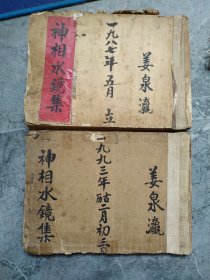 神相水鏡集
一九八七年五月立
姜泉瀛
神相水鏡集
一九九三年酷二月初三
姜泉瀛